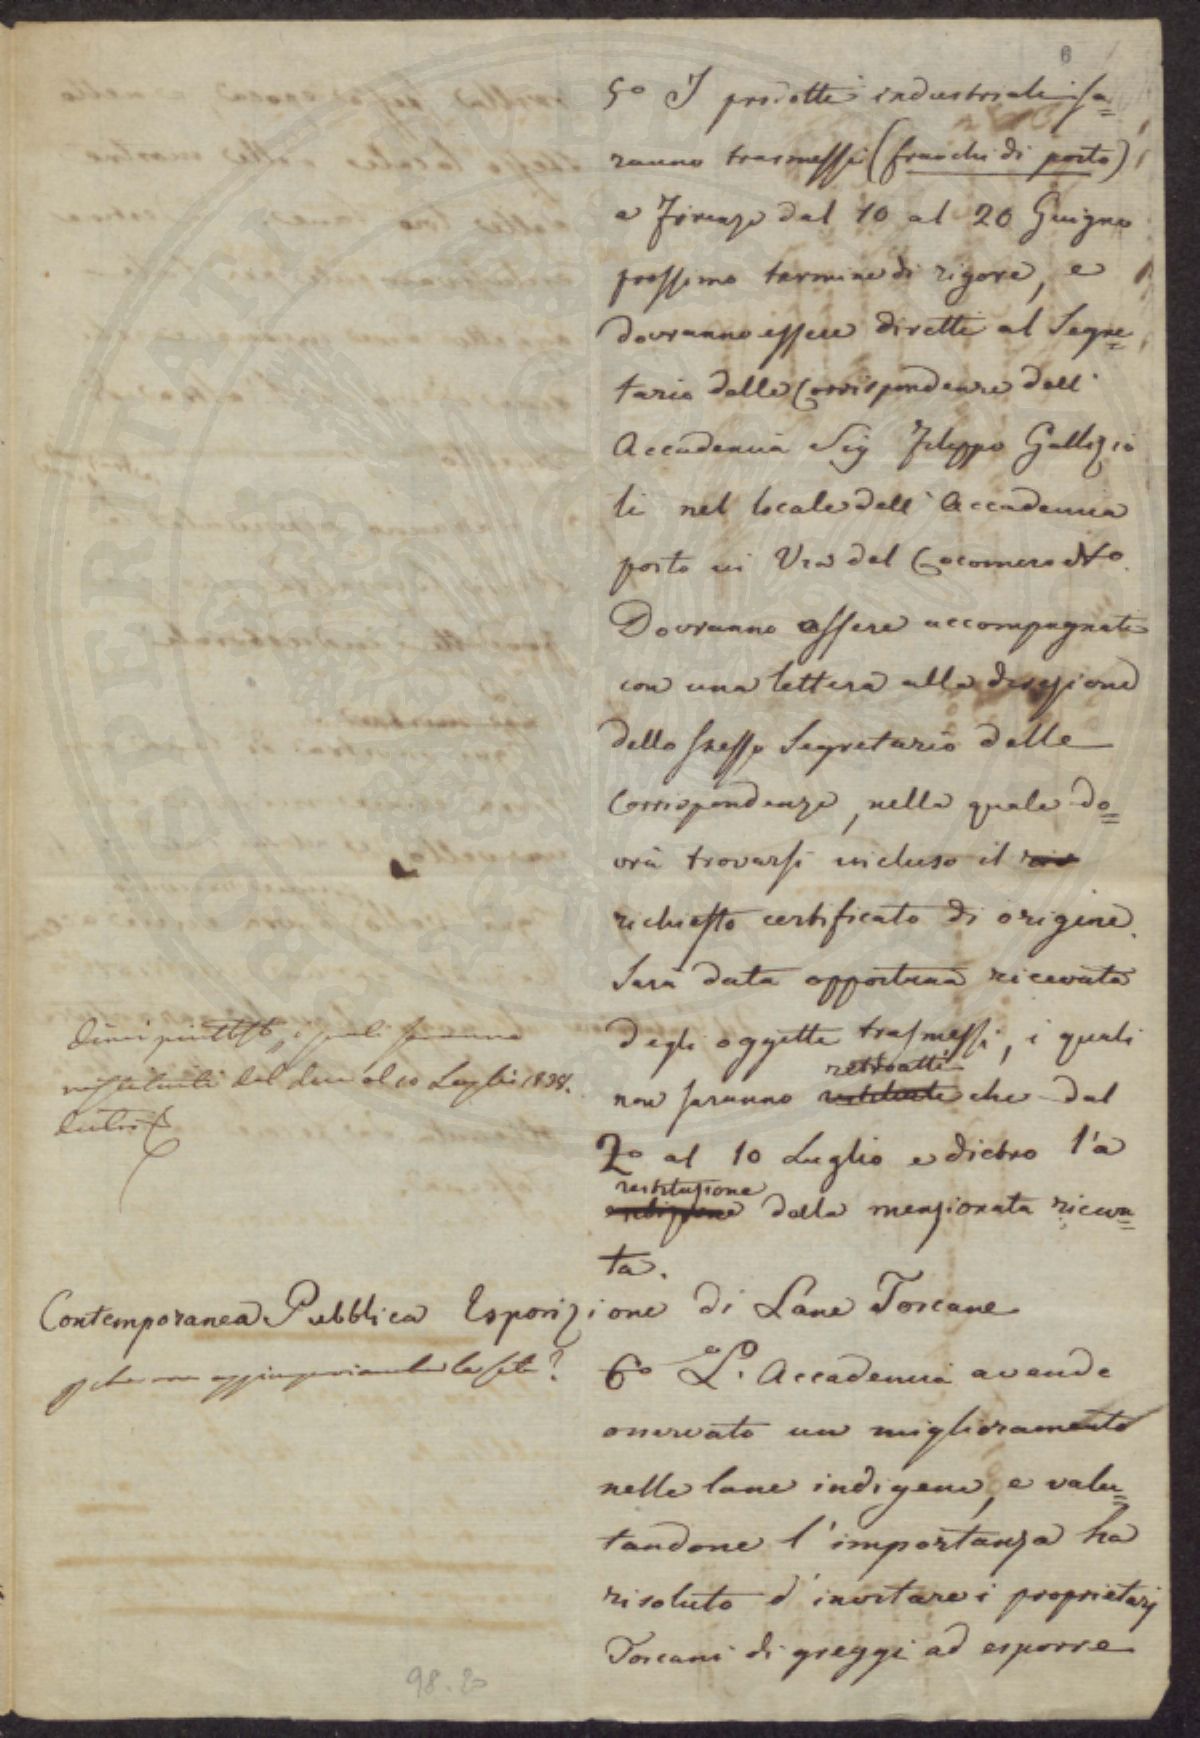 6
5º I prodotti industriali sa=
ranno trasmessi (franchi di porto)
a Firenze dal 10 al 20 Giugno
prossimo termine di rigore, e
dovranno essere diretti al Segre=
tario delle Corrispondenze dell'
Accademia Sig Filippo Gallizio
li nel locale dell'Accademia
posto in Via del Cocomero Nº.
Dovranno essere accompagnati
con una lettera alla direzione
dello stesso Segretario delle
Corrispondenze, nella quale do=
vrà trovarsi incluso il
richiesto certificato di origine.
Sarà data opportuna ricevuta
degli oggetti trasmessi, i quali
retroatti
non saranno restituiti che dal
2º al 10 Luglio e dietro l'a
restituzione
esibizione della menzionata ricevu=
ta.
direi piuttosto, i quali saranno
restituiti dal due al 10 Luglio 1838.
dietro
Contemporanea Pubblica Esposizione di Lane Toscane
che non aggiungeriamo la seta?
6º L'Accademia avendo
osservato un miglioramento
nelle lane indigene, e valu=
tandone l'importanza ha
risoluto d'invitare i proprietarj
Toscani di greggi ad esporre
98.20